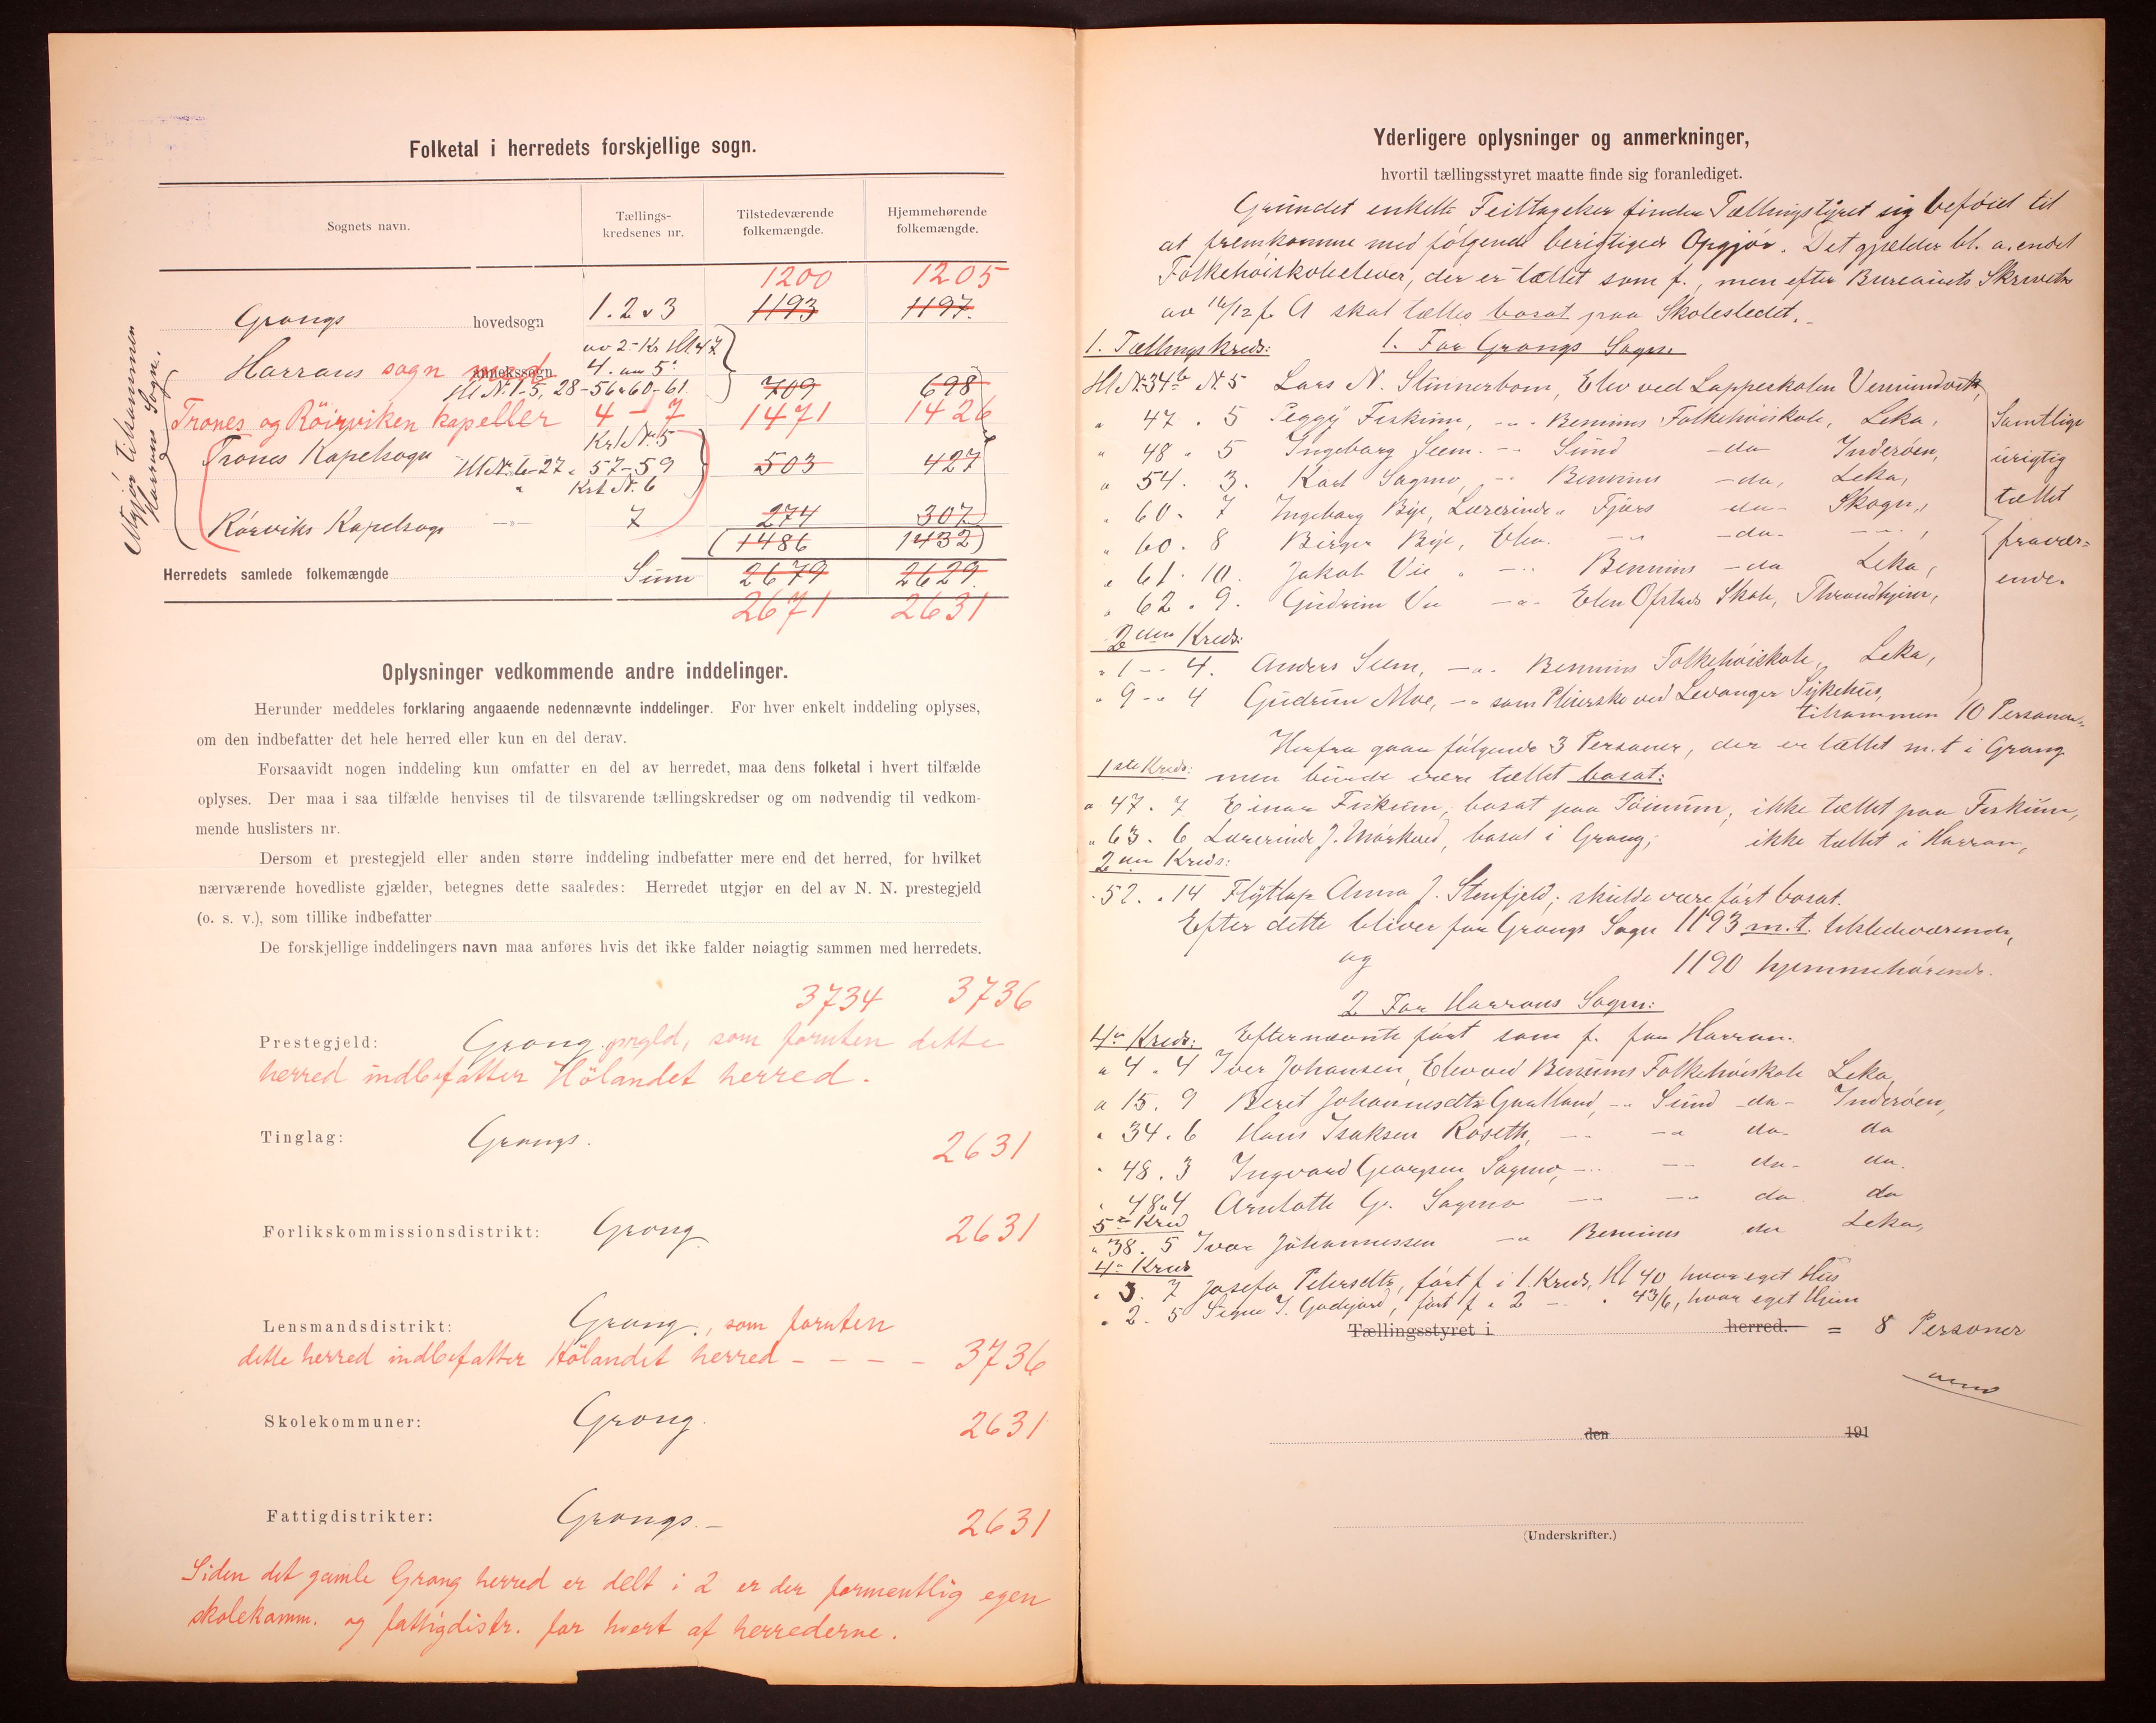 Folketal i herredets forskjellige sogn.
Sognets navn.
Tællings-
kredsenes nr.
Tilstedeværende
folkemængde.
Hjemmehørende
folkemængde.
1200 1205
Grongs hovedsogn 1. 2 & 3 1193 1197.
av 2- Kr Hl. 47
Harrans sogn med annekssogn 4. 5
Hl Nr. 1-5, 28-56 & 60-61. 709 698
Trones og Röirviken kapeller 4 - 7 1471 1426
Krl Nr. 5
Trones Kapelsogn Hl Nr. 6-27 57-59 503 427
Krl Nr. 6
Rörviks Kapelsogn 7 274 307
(1486 1432)
Herredets samlede folkemængde Sum 2679 2629.
2671 2631
Utgjør tilsammen
Harrans Sogn.
Oplysninger vedkommende andre inddelinger.
Herunder meddeles forklaring angaaende nedennævnte inddelinger. For hver enkelt inddeling oplyses,
om den indbefatter det hele herred eller kun en del derav.
Forsaavidt nogen inddeling kun omfatter en del av herredet, maa dens folketal i hvert tilfælde
oplyses. Der maa i saa tilfælde henvises til de tilsvarende tællingskredser og om nødvendig til vedkom-
mende huslisters nr.
Dersom et prestegjeld eller anden større inddeling indbefatter mere end det herred, for hvilket
nærværende hovedliste gjælder, betegnes dette saaledes: Herredet utgjør en del av N. N. prestegjeld
(o. s. v.), som tillike indbefatter
De forskjellige inddelingers navn maa anføres hvis det ikke falder nøiagtig sammen med herredets.
3734 3736
Prestegjeld: Grong prgld, som foruten dette
herred indbefatter Hölandet herred.
Tinglag: Grongs. 2631
Forlikskommissionsdistrikt: Grong 2631
Lensmandsdistrikt: Grong., som foruten
dette herred indbefatter Hölandet herred - - - - 3736
Skolekommuner: Grong. 2631
Fattigdistrikter: Grongs. - 2631
Siden det gamle Grong herred er delt i 2 er der formentlig egen
skolekomm. og fattigdistr. for hvert af herrederne.
Yderligere oplysninger og anmerkninger,
hvortil tællingsstyret maatte finde sig foranlediget.
Grundet enkelte Feiltagelser finder Tællingstyret sig beföiet til
at fremkomme med følgende berigtigede Opgjör. Det gjælder bl. a. endel
Folkehöiskoleelever, der er tællet som f., men efter Bureauets Skrivelse
av 16/12 f. A skal tælles bosat paa Skolestedet.
1. Tællingskreds: 1. For Grongs Sogn
Hl Nr. 34 b Nr. 5 Lars N. Stinnerbom, Elev ved Lappeskolen Vemundvik,
" 47 . 5 Peggy Fiskum, - " - Bennins Folkehöiskole, Leka,
" 48 " 5 Ingeborg Seem. - " - Sund - do - Inderöen,
" 54. 3. Karl Sagmo, - " - Bennins - do, Leka,
" 60. 7 Ingeborg Bye, Lærerinde " Fjörs do - Skogn,
" 60. 8 Birger Bye, Elev. - " - - do. - " -
" 61. 10. Jakob Vie " - " - Bennins - do Leka,
" 62. 9. Gudrun Vie - " - Elen Ofstads Skole, Throndhjem,
Samtlige
urigtig
tællet
fravær=
ende.
2den Kreds:
" 1 - " 4. Anders Seem, - " - Bennins Folkehöiskole, Leka,
" 9 - " 4 Gudrun Moe, - " som Pleierske ved Levanger Sykehus,
tilsammen 10 Personer.
Herfra gaar følgende 3 Personer, der er tællet m.t i Grong
1ste Kreds: men burde være tællet bosat:
" 47. 7 Einar Fiskum, bosat paa Föinum, ikke tællet paa Fiskum,
" 63. 6 Lærerinde J. Mörkved, bosat i Grong; ikke tællet i Harran,
2den Kreds:
" 52. " 14 Flytlap Anna J. Stenfjeld; skulde være fört bosat.
Efter dette bliver for Grongs Sogn 1193 m.t. tilstedeværende,
og 1190 hjemmehörende.
2. For Harrans Sogn:
4de Kreds: Efternævnte fört som f. fra Harran.
" 4 " 4 Iver Johansen, Elev ved Bennins Folkehöiskole Leka,
" 15. 9 Berit Johannesdtr Gartland, - " - Sund - do - Inderöen,
" 34. 6 Hans Isaksen Röseth, - " - - " do. do
" 48. 3 Ingvard Georgsen Sagmo, - " - - " - do - do.
" 48 " 4 Arnlotte G. Sagmo - " - - " - do. do
5te Kreds
" 38. 5 Ivar Johannessen - " Bennins do Leka,
4de Kreds
" 3. 7 Josefa Petersdtr, fört f i 1. Kreds, Hl 40, hvor eget Hus
" 2. 5 Signe J. Godejord, fört f " 2 - " . 43/6, hvor eget Hjem
Tællingsstyret i herred. = 8 Personer
den 191
(Underskrifter.)